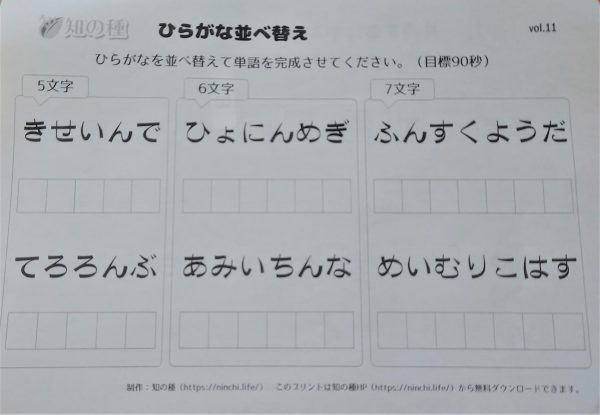 知の種
ひらがな並べ替え
vol.11
ひらがなを並べ替えて単語を完成させてください。（目標90秒）
5文字
6文字
7文字
きせいんで
ひょにんめぎ
ふんすくようだ
てろろんぶ
あみいちんな
めいむりこはす
制作：知の種（https://ninchi.life/） このプリントは知の種HP（https://ninchi.life/）から無料ダウンロードできます。